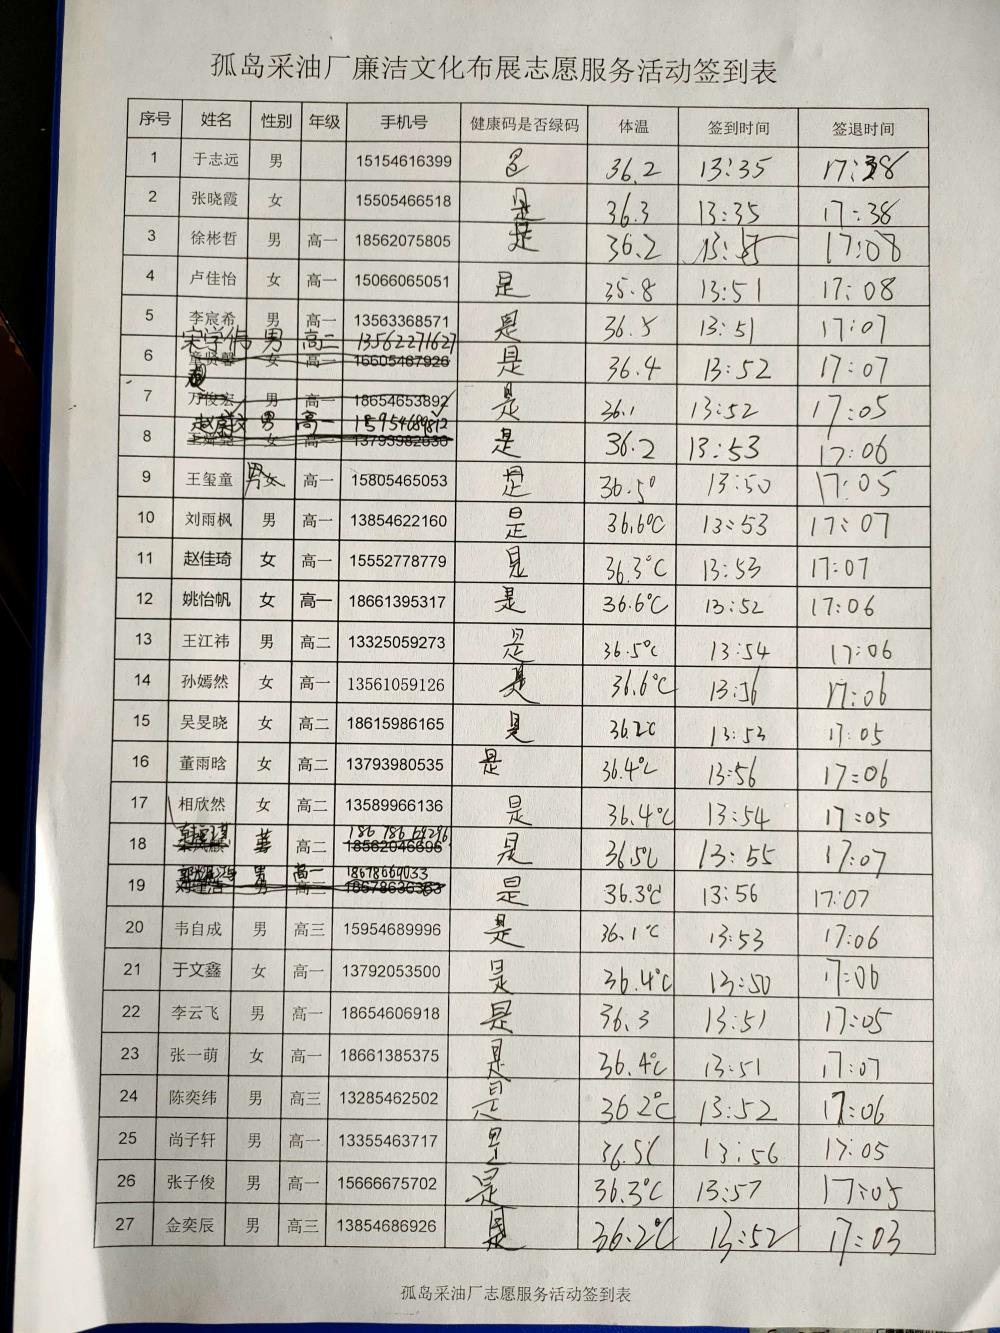 孤岛采油厂廉洁文化布展志愿服务活动签到表
序号 姓名 性别 年级 手机号 健康码是否绿码 体温 签到时间 签退时间
1 于志远 男 15154616399 是 36.2 13:35 17:38
2 张晓霞 女 15505466518 是 36.3 13:35 17:38
3 徐彬哲 男 高一 18562075805 是 36.2 17:08
4 卢佳怡 女 高一 15066065051 是 35.8 13:51 17:08
5 李宸希 男 高一 13563368571 是 36.5 13:51 17:07
宋学伟 男 高二 13562271627
6 童贤馨 女 高一 16605487926 是 36.4 13:52 17:07
7 万俊宏 男 高一 18654653892 是 36.1 13:52 17:05
赵 男 高一 15954689812
8 女 高一 13793982630 是 36.2 13:53 17:06
9 王玺童 男 高一 15805465053 是 36.5° 13:50 17:05
10 刘雨枫 男 高一 13854622160 是 36.6°C 13:53 17:07
11 赵佳琦 女 高一 15552778779 是 36.3°C 13:53 17:07
12 姚怡帆 女 高一 18661395317 是 36.6°C 13:52 17:06
13 王江祎 男 高二 13325059273 是 36.5°C 13:54 17:06
14 孙嫣然 女 高一 13561059126 是 36.6°C 13:56 17:06
15 吴旻晓 女 高二 18615986165 是 36.2C 13:53 17:05
16 董雨晗 女 高二 13793980535 是 36.4°C 13:56 17:06
17 相欣然 女 高二 13589966136 是 36.4°C 13:54 17:05
18 高二 18562046696 是 36.5C 13:55 17:07
男 高一 18678669033
19 男 高二 18678636363 是 36.3°C 13:56 17:07
20 韦自成 男 高三 15954689996 是 36.1°C 13:53 17:06
21 于文鑫 女 高一 13792053500 是 36.4°C 13:50 17:06
22 李云飞 男 高一 18654606918 是 36.3 13:51 17:05
23 张一萌 女 高一 18661385375 是 36.4°C 13:51 17:07
24 陈奕纬 男 高三 13285462502 是 36.2°C 13:52 17:06
25 尚子轩 男 高一 13355463717 是 36.5C 13:56 17:05
26 张子俊 男 高一 15666675702 是 36.3°C 13:57 17:05
27 金奕辰 男 高三 13854686926 是 36.2°C 13:52 17:03
孤岛采油厂志愿服务活动签到表